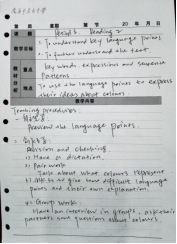 20 年 月 日
Period 3 Reading 2
1. To understand key language points
2. To further understand the text.
key words, expressions and sentence
patterns
To use the language points to express
their ideas about colours.
教学内容
Teaching procedures:
Preview the language points.
Revision and checking
1) Have a dictation.
2) Pair work
Talk about what colours represent
3) Ask Ss to give some difficult language
points and their own explanation.
4) Group work:
Have an interview in groups, ask their
partners and questions about colours.